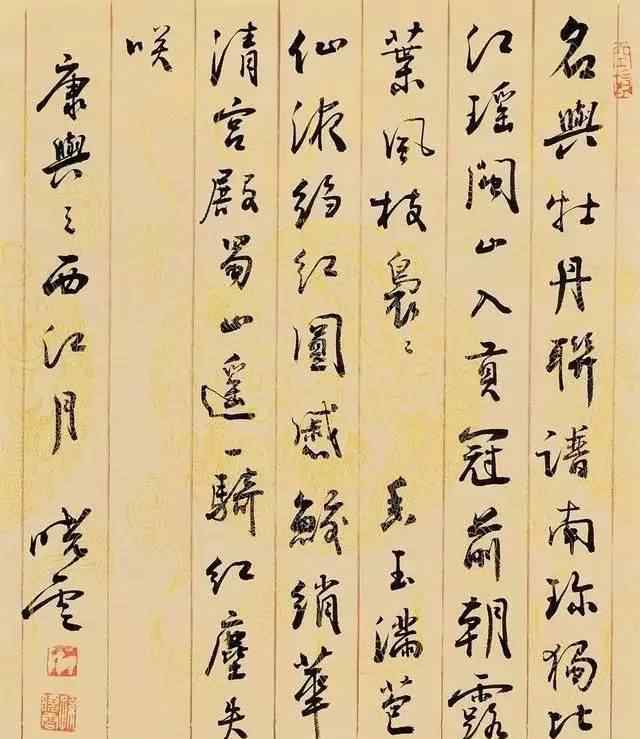 名與牡丹聯譜南珍獨比
江瑶閩山入貢冠前朝露
葉風枝裊〻 香玉滿苞
仙液絳紅圓蹙鮫綃華
清宮殿蜀山遥一騎紅塵失
咲
康與之西江月 曉雲